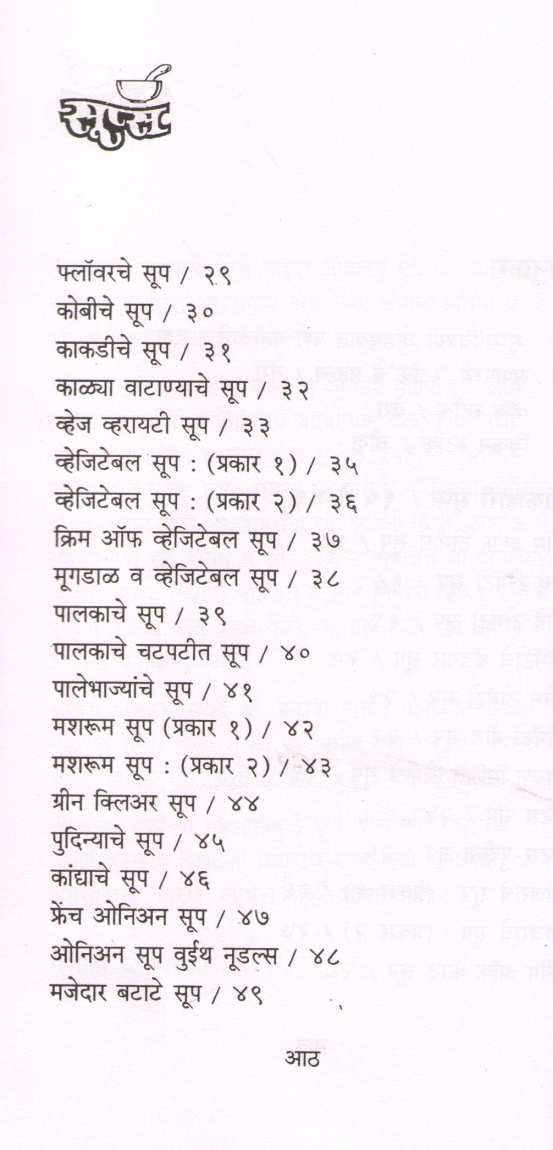 सूप्स
फ्लॉवरचे सूप / २९
कोबीचे सूप / ३०
काकडीचे सूप / ३१
काळ्या वाटाण्याचे सूप / ३२
व्हेज व्हरायटी सूप / ३३
व्हेजिटेबल सूप : (प्रकार १) / ३५
व्हेजिटेबल सूप : (प्रकार २) / ३६
क्रिम ऑफ व्हेजिटेबल सूप / ३७
मूगडाळ व व्हेजिटेबल सूप / ३८
पालकाचे सूप / ३९
पालकाचे चटपटीत सूप / ४०
पालेभाज्यांचे सूप / ४१
मशरूम सूप (प्रकार १) / ४२
मशरूम सूप : (प्रकार २) / ४३
ग्रीन क्लिअर सूप / ४४
पुदिन्याचे सूप / ४५
कांद्याचे सूप / ४६
फ्रेंच ओनिअन सूप / ४७
ओनिअन सूप वुईथ नूडल्स / ४८
मजेदार बटाटे सूप / ४९
आठ